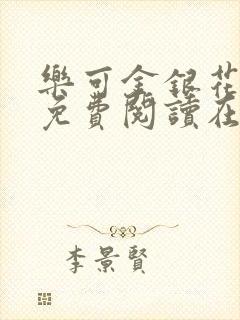 樂可金銀花
免費閱讀在
李景賢